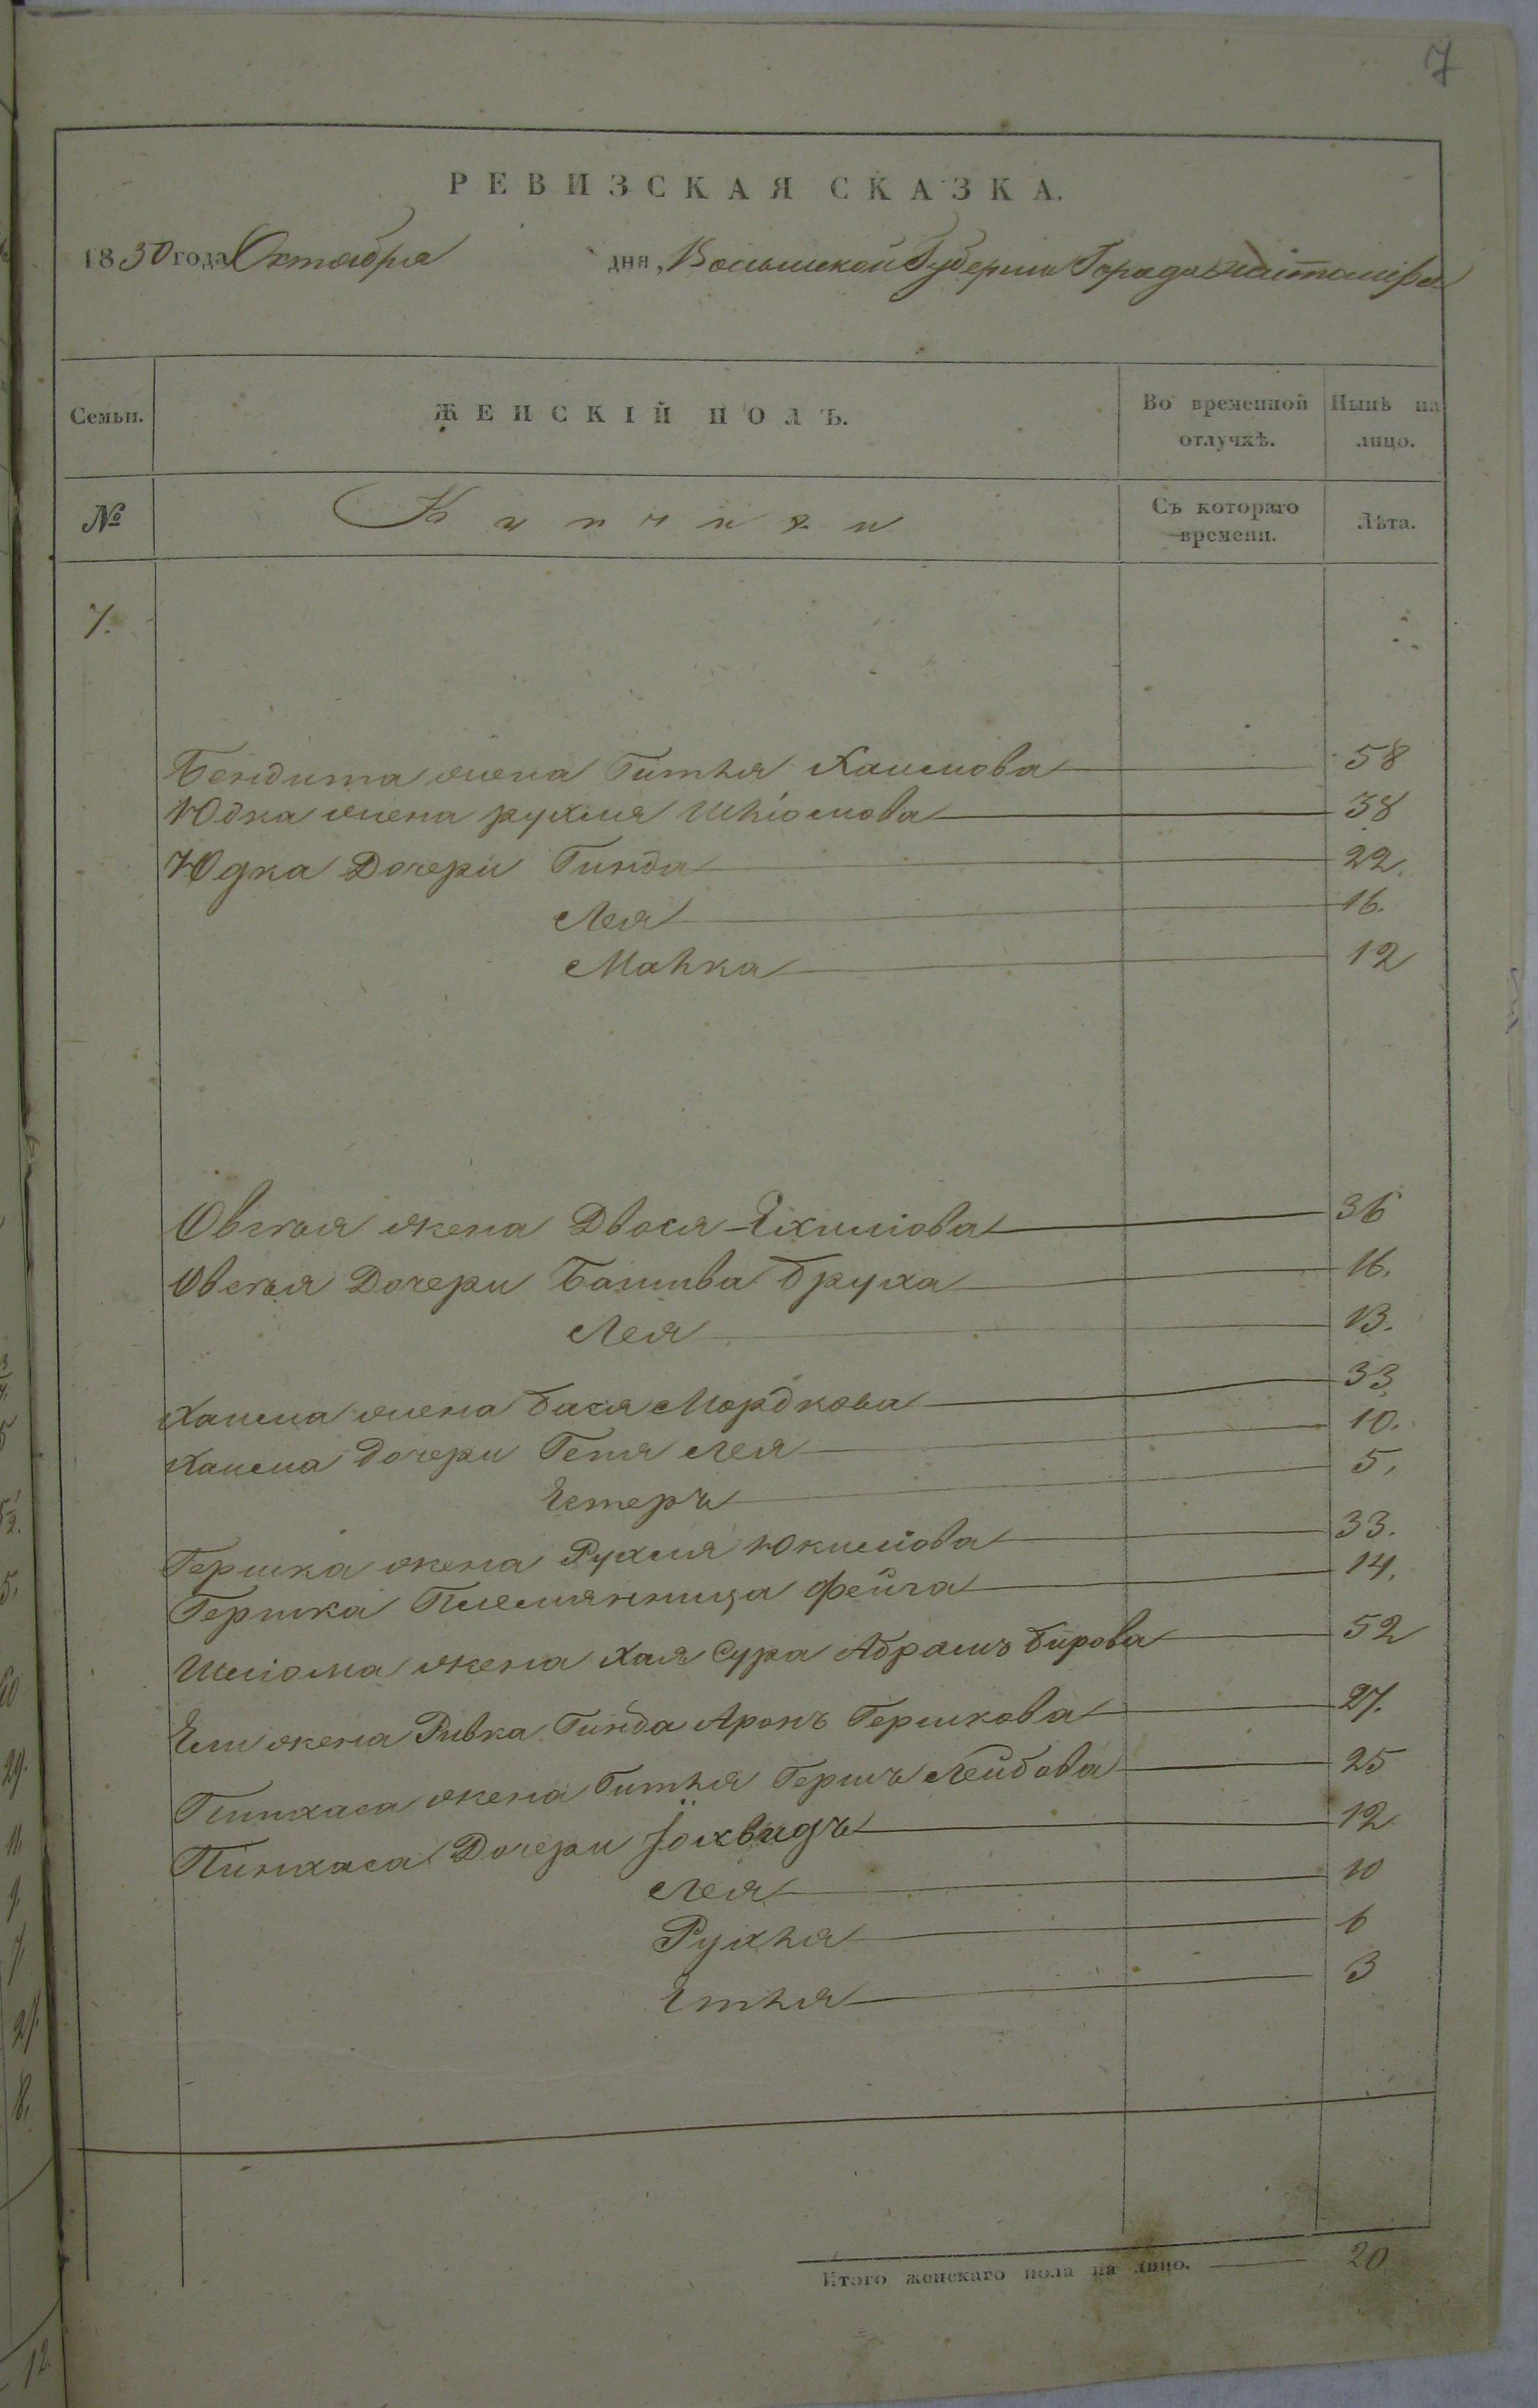 7
РЕВИЗСКАЯ СКАЗКА.
1830 года Октября дня, Волынской Губернии Города Житомира
Семьи. ЖЕНСКІЙ ПОЛЪ. Во временной отлучкѣ. Нынѣ на лицо.
№ Съ котораго времени. Лѣта.
7.
Бендита жена Гитля Хаимова 58
Юдка жена рухля Шліомова 38
Юдка Дочери Гинда 22.
Лея 16.
Малка 12
Овсея жена Двося 36
Овсея Дочери Башива бруха 16.
Лея 13.
Хаима жена бася Мордкова 33
Хаима дочери Геня Лея 10.
Естеръ 5.
Гершка жена Рухля 33.
Гершка Племянница фейга 14.
Шліома жена Хая Сура Абрамъ 52
жена Ривка Гинда Аронъ Гершкова 27.
Пинхаса жена Гитля Гершъ Лейбова 25
Пинхаса Дочери Іохвидъ 12
Лея 10
Рухля 6
Етля 3
Итого женскаго пола на лицо. 20